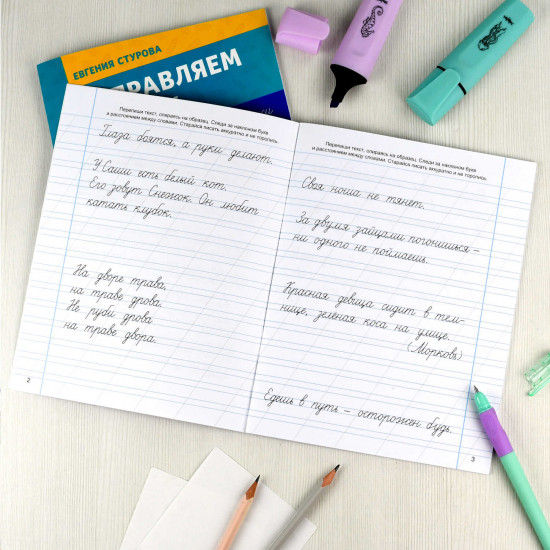 ЕВГЕНИЯ СТУРОВА
Перепиши текст, опираясь на образец. Следи за наклоном букв
и расстоянием между словами. Старайся писать аккуратно и не торопись.
Глаза боятся, а руки делают.
У Саши есть белый кот.
Его зовут Снежок. Он любит
катать клубок.
На дворе трава,
на траве дрова.
Не руби дрова
на траве двора.
2
Перепиши текст, опираясь на образец. Следи за наклоном букв
и расстоянием между словами. Старайся писать аккуратно и не торопись.
Своя ноша не тянет.
За двумя зайцами погонишься –
ни одного не поймаешь.
Красная девица сидит в тем-
нице, зеленая коса на улице.
(Морковь)
Едешь в путь – осторожен будь.
3